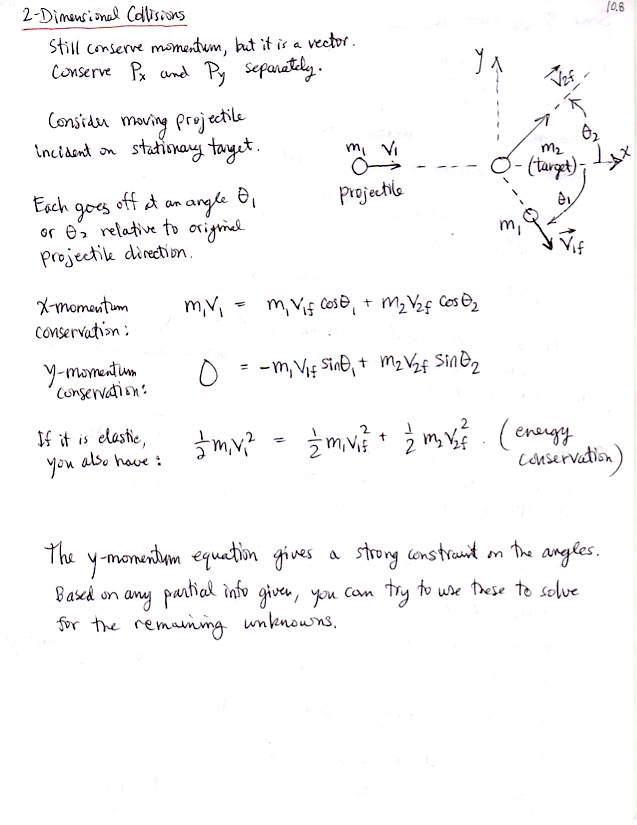 10.8
2-Dimensional Collisions
Still conserve momentum, but it is a vector.
Conserve Px and Py separately.
Consider moving projectile
incident on stationary target.
Each goes off at an angle θ₁
or θ₂ relative to original
projectile direction.
y
V⃗₂f
θ₂
m₁ V₁
projectile
m₂
(target)
x
θ₁
m₁
V⃗₁f
X-momentum
conservation:
m₁V₁ = m₁V₁f cosθ₁ + m₂V₂f cosθ₂
y-momentum
conservation:
0 = -m₁V₁f sinθ₁ + m₂V₂f sinθ₂
If it is elastic,
you also have:
½m₁V₁² = ½m₁V₁f² + ½m₂V₂f². (energy
conservation)
The y-momentum equation gives a strong constraint on the angles.
Based on any partial info given, you can try to use these to solve
for the remaining unknowns.